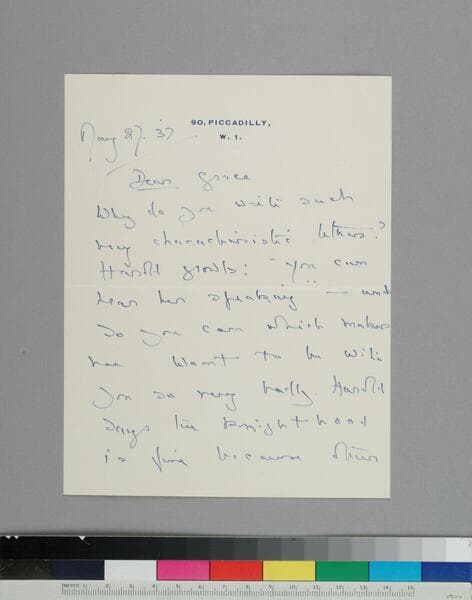 90, PICCADILLY,
W. 1.
May 27. 37
Dear Grace
Why do you write such
very characteristic letters?
Harold growls: "you can
hear her speaking — and
so you can which makes
me want to be with
you so very badly. Harold
says the knighthood
is fine because others